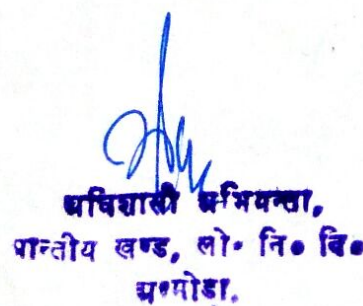 अधिशासी अभियन्ता,
प्रान्तीय खण्ड, लो॰ नि॰ वि॰
अल्मोडा.